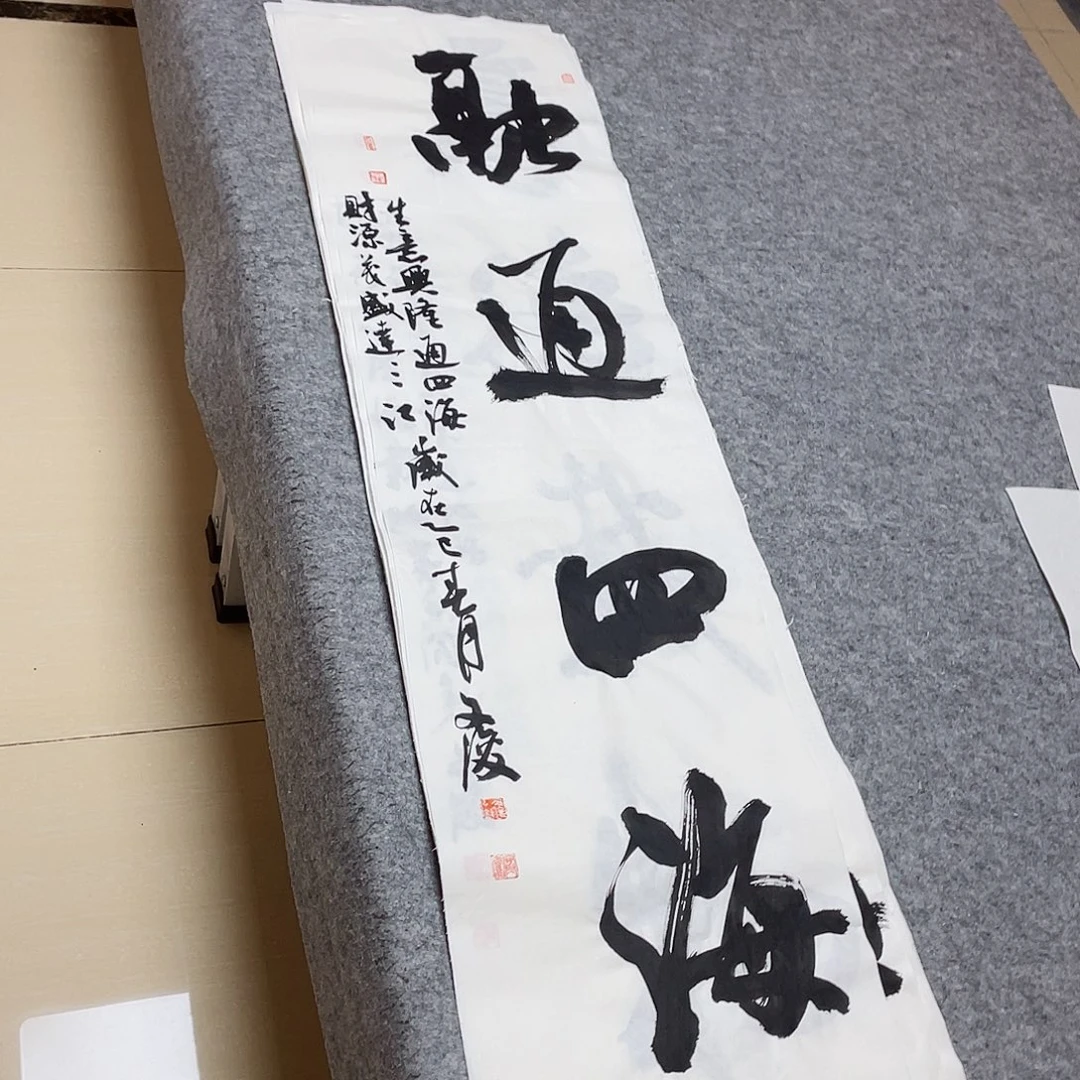 融通四海
生意興隆通四海
財源茂盛達三江
歲在乙巳春月